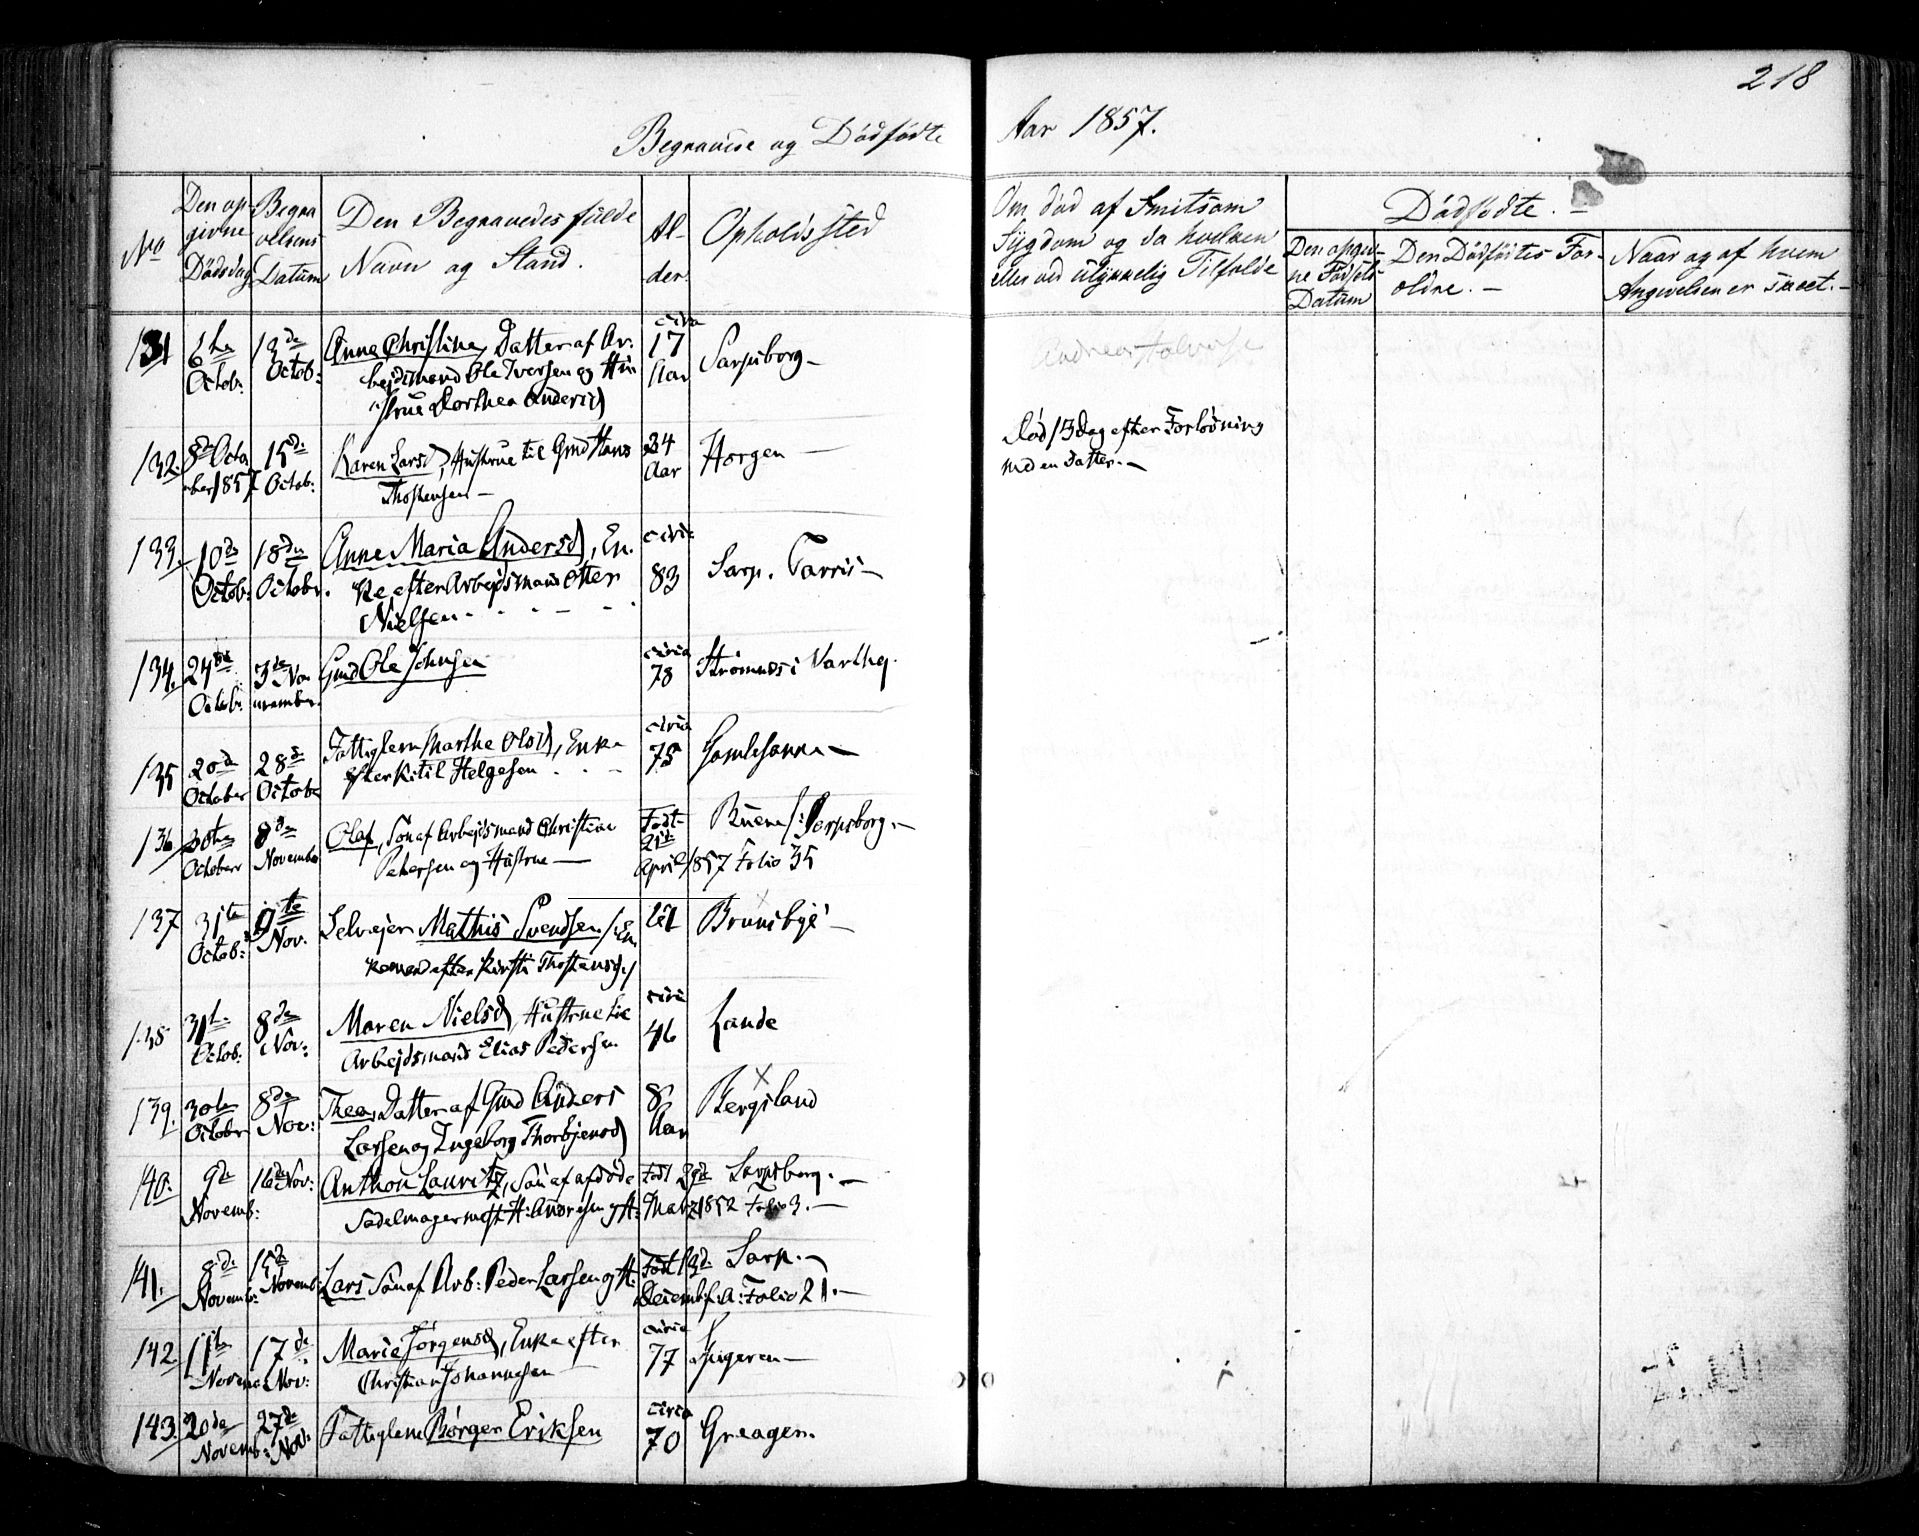 218
Begravne og Dødfødte Aar 1857.
No
Den opgivne Dødsdag
Begravelsens Datum
Den Begravedes fulde Navn og Stand.
Alder
Opholdssted
Om død af Smitsom Sygdom og da hvilken eller ved ulykkelig Tilfælde
Dødfødte. —
Den opgivne Fødsels Datum
Den Dødfødtes Forældre. —
Naar og af hvem Angivelsen er skeet. —
131 6te Octob: 13de Octob: Anne Christine, Datter af Ar- circa 17 Aar Sarpsborg —
bejdsmand Ole Iversen og Hu-
strue Dorthea Andersd
132. 8de October 1857 15de Octob: Karen Larsd, Hustrue til Gmd Hans 34 Aar Horgen —
Thostensen —
Død 13 Dag efter Forløsning
med en Datter. —
133. 10de Octob: 18de Octobr. Anne Maria Andersd, En- circa 83 Sarp. Farris —
ke efter Arbejdsmand Otter
Nielsen
134. 24de Octob: 3de November Gmd Ole Johnsen circa 78 Strømnes i Varteg.
135 20de October 28de Octobr Fattiglem Marthe Olsd, Enke circa 75 —
efter Kitil Helgesen
136 30te October 8de November Olaf, Søn af Arbejdsmand Christian Født 21de /: Sarpsborg. —
Petersen og Hustrue — April 1857 Folio 35
137 31te Octob: 9te Nov. Selvejer Mathis Svendsen /: En- 61 Brunsbye —
kemand efter Kirsti Thostensd /
138 31te Octob: 8de Nov: Maren Nielsd, Hustrue til circa 46 Lande
Arbejdsmand Elias Pedersen
139. 30te Octobr 8de Nov: Thea, Datter af Gmd Anders 8 Aar Bergsland
Larsen og Ingeborg Thorbjensd
140. 9de Novemb: 16de Nov: Anthon Lauritz, Søn af afdøde Født 29de Sarpsborg. —
Sadelmagermest H: Andresen og H: Marz 1852 Folio 3. —
141. 8de Novemb: 15de Novemb: Lars Søn af Arb: Peder Larsen og H: Født 13de Sarp. —
Decemb. f: A: Folio 21. —
142. 11te Novemb 17de Nov: Marie Jørgensd, Enke efter circa 77 Spigeren —
Christian Johannesen
143. 20de Novemb: 27de Nov: Fattiglem Børger Eriksen circa 70 Greager.